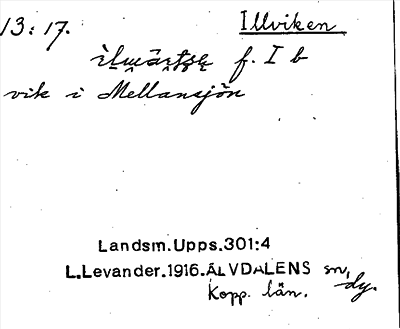 13:17. Illviken
f. I b
vik i Mellansjön
Landsm.Upps.301:4
L.Levander.1916.ÄLVDALENS sn,
Kopp. län. dy.